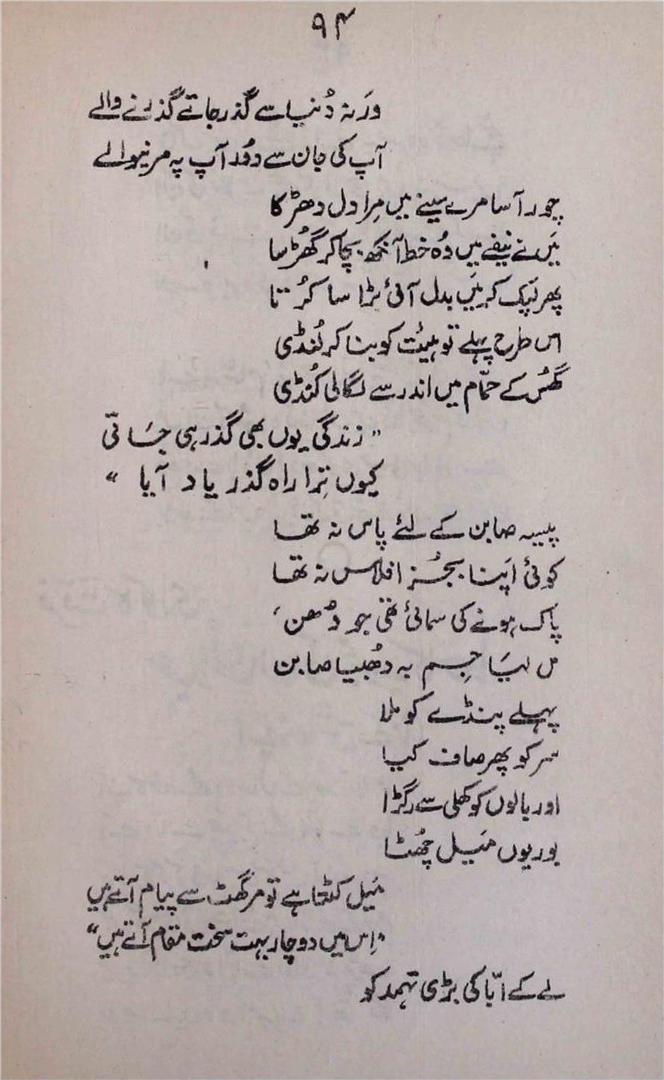 ۹۴
ورنہ دُنیا سے گذر جاتے گذرنے والے
آپ کی جان سے دُور آپ پہ مرنیوالے
چور آسا مرے سینے میں مِرا دل دھڑکا
مَیں نے نیفے میں وُہ خط آنکھ بچا کر گھُڑسا
پھر لپک کر مَیں بدل آئی بڑا سا کُرتا
اس طرح پہلے تو ہیئت کو بنا کر لُنڈی
گھُس کے حمّام میں اندر سے لگالی کُنڈی
"زندگی یوں بھی گذر ہی جَاتی
کیوں تِرا راہ گذر یاد آیا"
پیسہ صابن کے لئے پاس نہ تھا
کوئی اَپنا بجُز افلاس نہ تھا
پاک ہونے کی سمائی تھی جو دُھن،
مل لیَا جِسم پہ دھُبیا صابن
پہلے پِنڈے کو ملا
سر کو پھر صاف کیا
اور بالوں کو کھلی سے رگڑا
یوریوں مَیل چھُٹا
مَیل کٹتا ہے تو مرگھٹ سے پیام آتے ہیں
"اِس میں دوچار بہت سخت مقام آتے ہیں"
لے کے ابّا کی بڑی تہمد کو